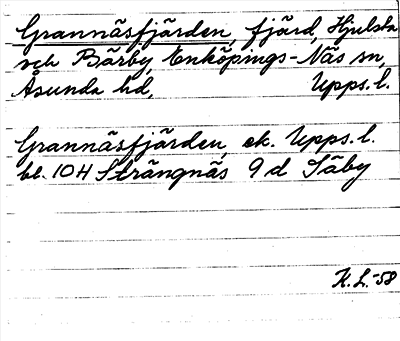 Grannäsfjärden, fjärd, Hjulsta
och Bärby, Enköpings-Näs sn,
Åsunda hd, Upps. l.
Grannäsfjärden, ek. Upps. l.
bl. 104 Strängnäs 9 d Säby
K. L. -58